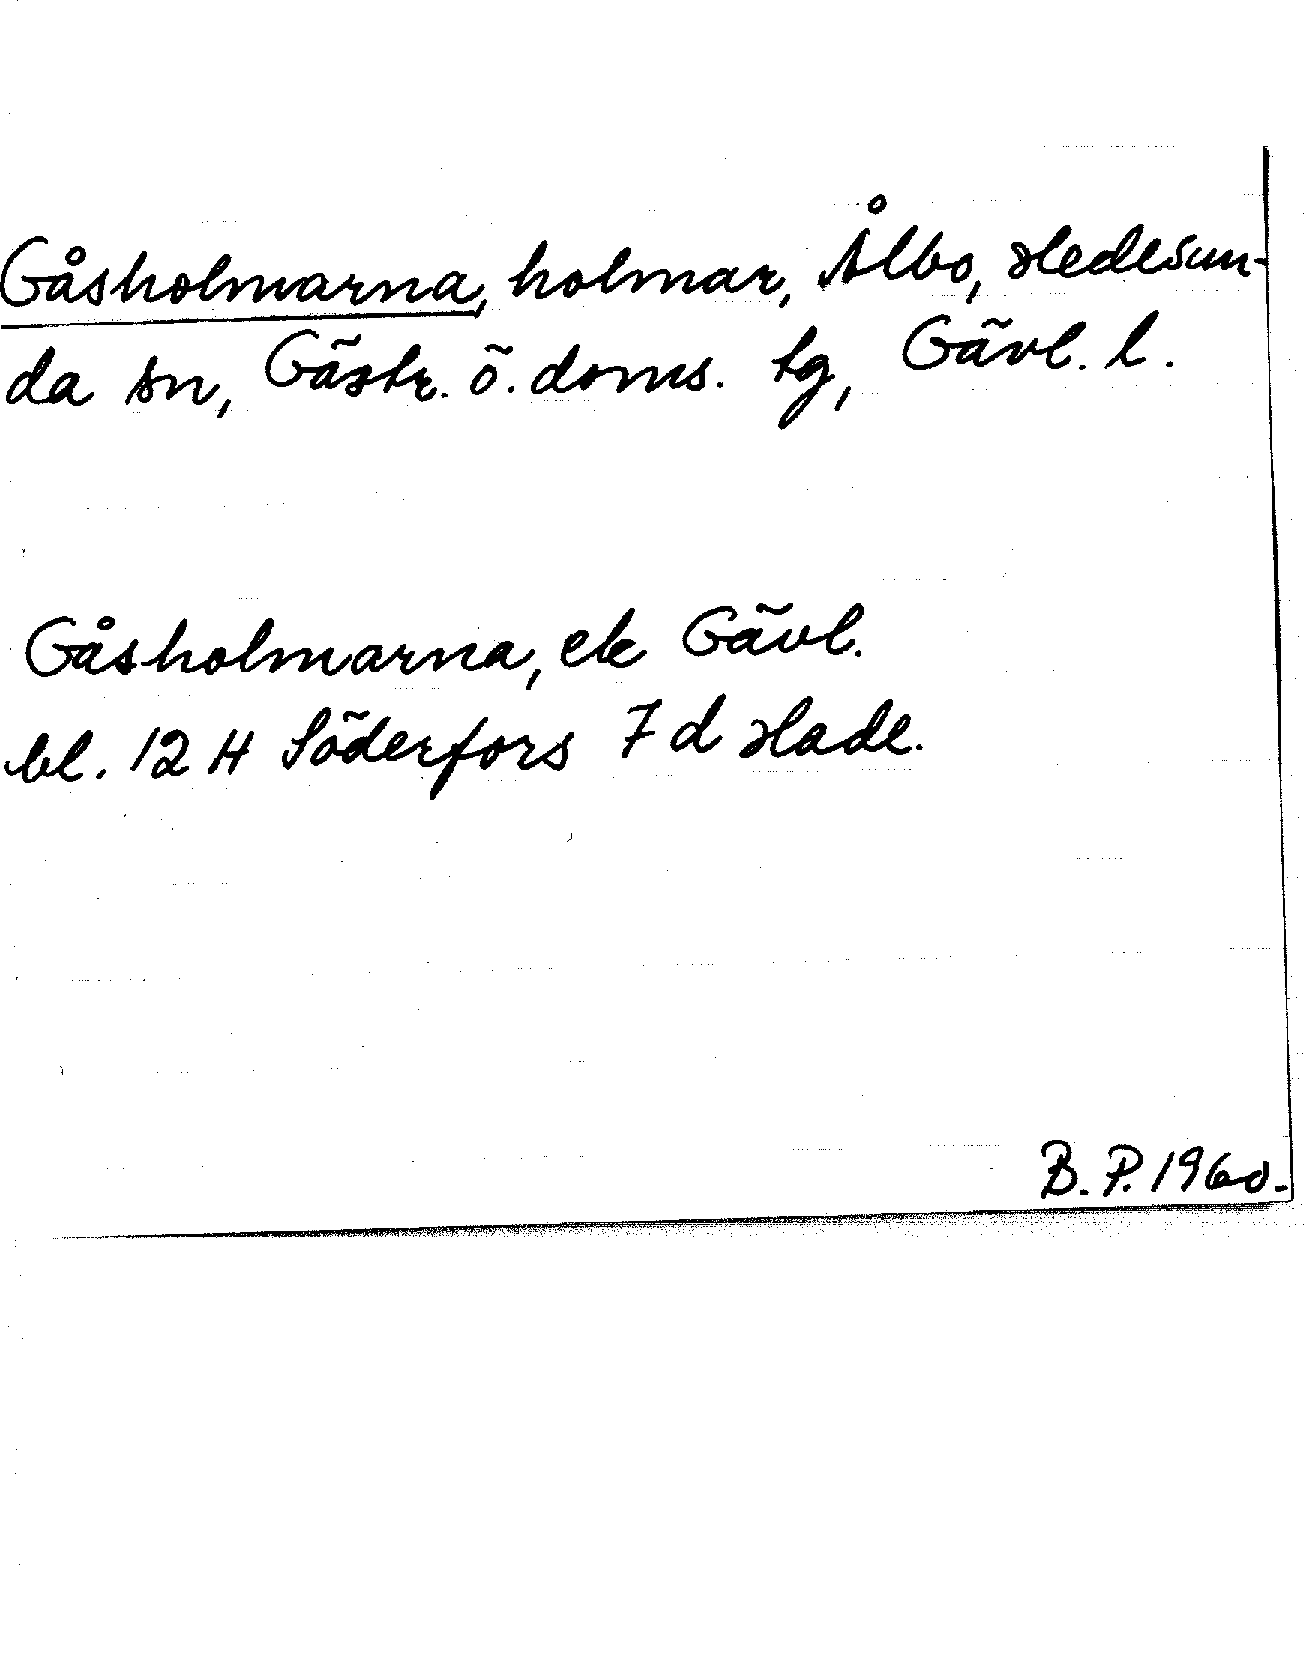 Gåsholmarna, holmar, Ålbo, Hedesun-
da sn, Gästr. ö. doms. tg, Gävl. l.
Gåsholmarna, ek Gävl.
bl. 12 H Söderfors 7 d Hade.
B. P. 1960.